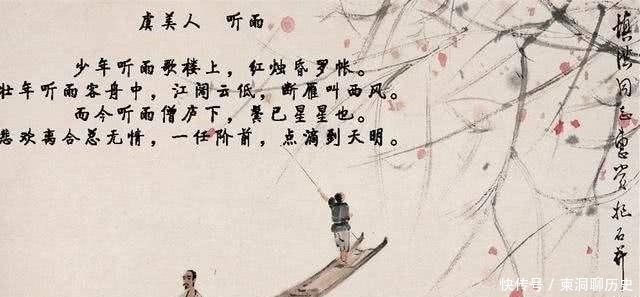 虞美人 听雨
少年听雨歌楼上，红烛昏罗帐。
壮年听雨客舟中，江阔云低，断雁叫西风。
而今听雨僧庐下，鬓已星星也。
悲欢离合总无情，一任阶前，点滴到天明。
快传号 / 柬洞聊历史